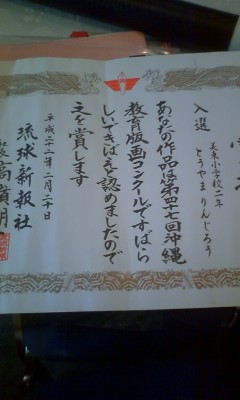 入選
美東小学校二年
とうやま りんじろう
あなたの作品は第四十七回沖縄
教育版画コンクールですばら
しいできばえを認めましたので
之を賞します
平成二十一年二月二十日
琉球新報社
高嶺朝